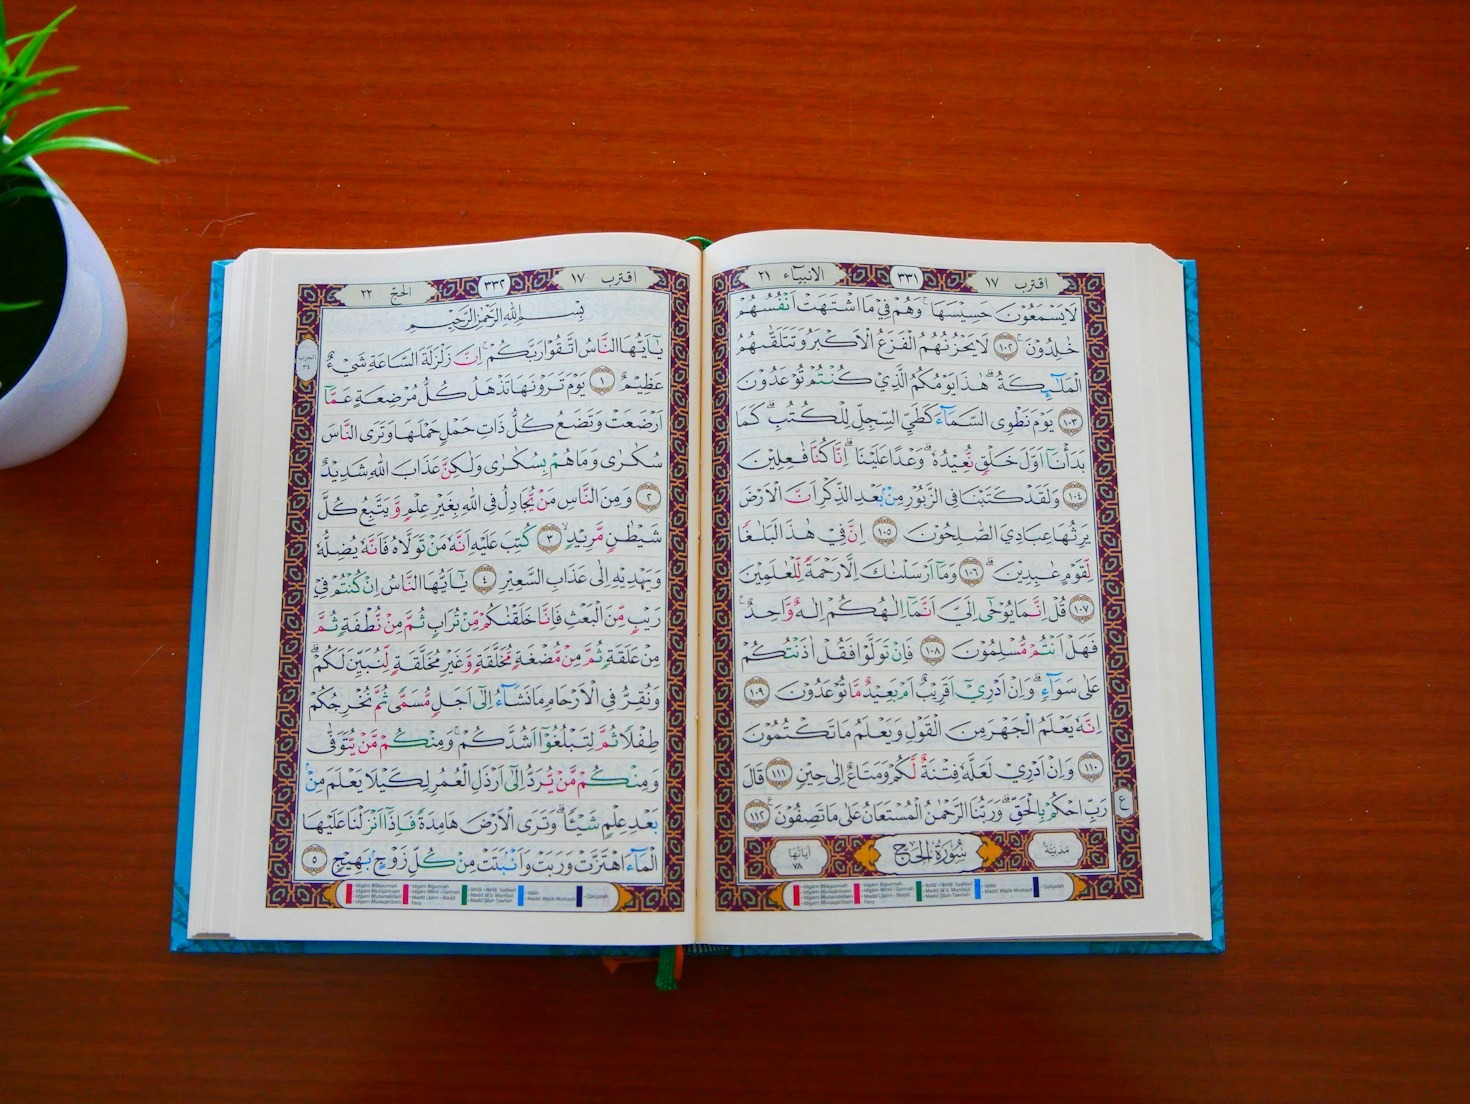 اقترب ١٧
٣٣١
الانبيآء ٢١
لَا يَسْمَعُوْنَ حَسِيْسَهَاۚ وَهُمْ فِيْ مَا اشْتَهَتْ اَنْفُسُهُمْ
خٰلِدُوْنَۚ ١٠٢ لَا يَحْزُنُهُمُ الْفَزَعُ الْاَكْبَرُ وَتَتَلَقّٰىهُمُ
الْمَلٰۤىِٕكَةُۗ هٰذَا يَوْمُكُمُ الَّذِيْ كُنْتُمْ تُوْعَدُوْنَ
١٠٣ يَوْمَ نَطْوِى السَّمَاۤءَ كَطَيِّ السِّجِلِّ لِلْكُتُبِۗ كَمَا
بَدَأْنَآ اَوَّلَ خَلْقٍ نُّعِيْدُهٗۗ وَعْدًا عَلَيْنَاۗ اِنَّا كُنَّا فٰعِلِيْنَ
١٠٤ وَلَقَدْ كَتَبْنَا فِى الزَّبُوْرِ مِنْۢ بَعْدِ الذِّكْرِ اَنَّ الْاَرْضَ
يَرِثُهَا عِبَادِيَ الصّٰلِحُوْنَ ١٠٥ اِنَّ فِيْ هٰذَا لَبَلٰغًا
لِّقَوْمٍ عٰبِدِيْنَۗ ١٠٦ وَمَآ اَرْسَلْنٰكَ اِلَّا رَحْمَةً لِّلْعٰلَمِيْنَ
١٠٧ قُلْ اِنَّمَا يُوْحٰٓى اِلَيَّ اَنَّمَآ اِلٰهُكُمْ اِلٰهٌ وَّاحِدٌۚ
فَهَلْ اَنْتُمْ مُّسْلِمُوْنَ ١٠٨ فَاِنْ تَوَلَّوْا فَقُلْ اٰذَنْتُكُمْ
عَلٰى سَوَاۤءٍۗ وَاِنْ اَدْرِيْٓ اَقَرِيْبٌ اَمْ بَعِيْدٌ مَّا تُوْعَدُوْنَ ١٠٩
اِنَّهٗ يَعْلَمُ الْجَهْرَ مِنَ الْقَوْلِ وَيَعْلَمُ مَا تَكْتُمُوْنَ
١١٠ وَاِنْ اَدْرِيْ لَعَلَّهٗ فِتْنَةٌ لَّكُمْ وَمَتَاعٌ اِلٰى حِيْنٍ ١١١ قَالَ
رَبِّ احْكُمْ بِالْحَقِّۗ وَرَبُّنَا الرَّحْمٰنُ الْمُسْتَعَانُ عَلٰى مَا تَصِفُوْنَ ١١٢
ع
مَدَنِيَّة سُوْرَةُ الْحَجِّ اٰيَاتُهَا ٧٨
اقترب ١٧
٣٣٢
الحج ٢٢
بِسْمِ اللّٰهِ الرَّحْمٰنِ الرَّحِيْمِ
يٰٓاَيُّهَا النَّاسُ اتَّقُوْا رَبَّكُمْۚ اِنَّ زَلْزَلَةَ السَّاعَةِ شَيْءٌ
عَظِيْمٌ ١ يَوْمَ تَرَوْنَهَا تَذْهَلُ كُلُّ مُرْضِعَةٍ عَمَّآ
اَرْضَعَتْ وَتَضَعُ كُلُّ ذَاتِ حَمْلٍ حَمْلَهَا وَتَرَى النَّاسَ
سُكٰرٰى وَمَا هُمْ بِسُكٰرٰى وَلٰكِنَّ عَذَابَ اللّٰهِ شَدِيْدٌ
٢ وَمِنَ النَّاسِ مَنْ يُّجَادِلُ فِى اللّٰهِ بِغَيْرِ عِلْمٍ وَّيَتَّبِعُ كُلَّ
شَيْطٰنٍ مَّرِيْدٍۙ ٣ كُتِبَ عَلَيْهِ اَنَّهٗ مَنْ تَوَلَّاهُ فَاَنَّهٗ يُضِلُّهٗ
وَيَهْدِيْهِ اِلٰى عَذَابِ السَّعِيْرِ ٤ يٰٓاَيُّهَا النَّاسُ اِنْ كُنْتُمْ فِيْ
رَيْبٍ مِّنَ الْبَعْثِ فَاِنَّا خَلَقْنٰكُمْ مِّنْ تُرَابٍ ثُمَّ مِنْ نُّطْفَةٍ ثُمَّ
مِنْ عَلَقَةٍ ثُمَّ مِنْ مُّضْغَةٍ مُّخَلَّقَةٍ وَّغَيْرِ مُخَلَّقَةٍ لِّنُبَيِّنَ لَكُمْۗ
وَنُقِرُّ فِى الْاَرْحَامِ مَا نَشَاۤءُ اِلٰٓى اَجَلٍ مُّسَمًّى ثُمَّ نُخْرِجُكُمْ
طِفْلًا ثُمَّ لِتَبْلُغُوْٓا اَشُدَّكُمْۚ وَمِنْكُمْ مَّنْ يُّتَوَفّٰى
وَمِنْكُمْ مَّنْ يُّرَدُّ اِلٰٓى اَرْذَلِ الْعُمُرِ لِكَيْلَا يَعْلَمَ مِنْۢ
بَعْدِ عِلْمٍ شَيْـًٔاۗ وَتَرَى الْاَرْضَ هَامِدَةً فَاِذَآ اَنْزَلْنَا عَلَيْهَا
الْمَاۤءَ اهْتَزَّتْ وَرَبَتْ وَاَنْۢبَتَتْ مِنْ كُلِّ زَوْجٍۢ بَهِيْجٍ ٥